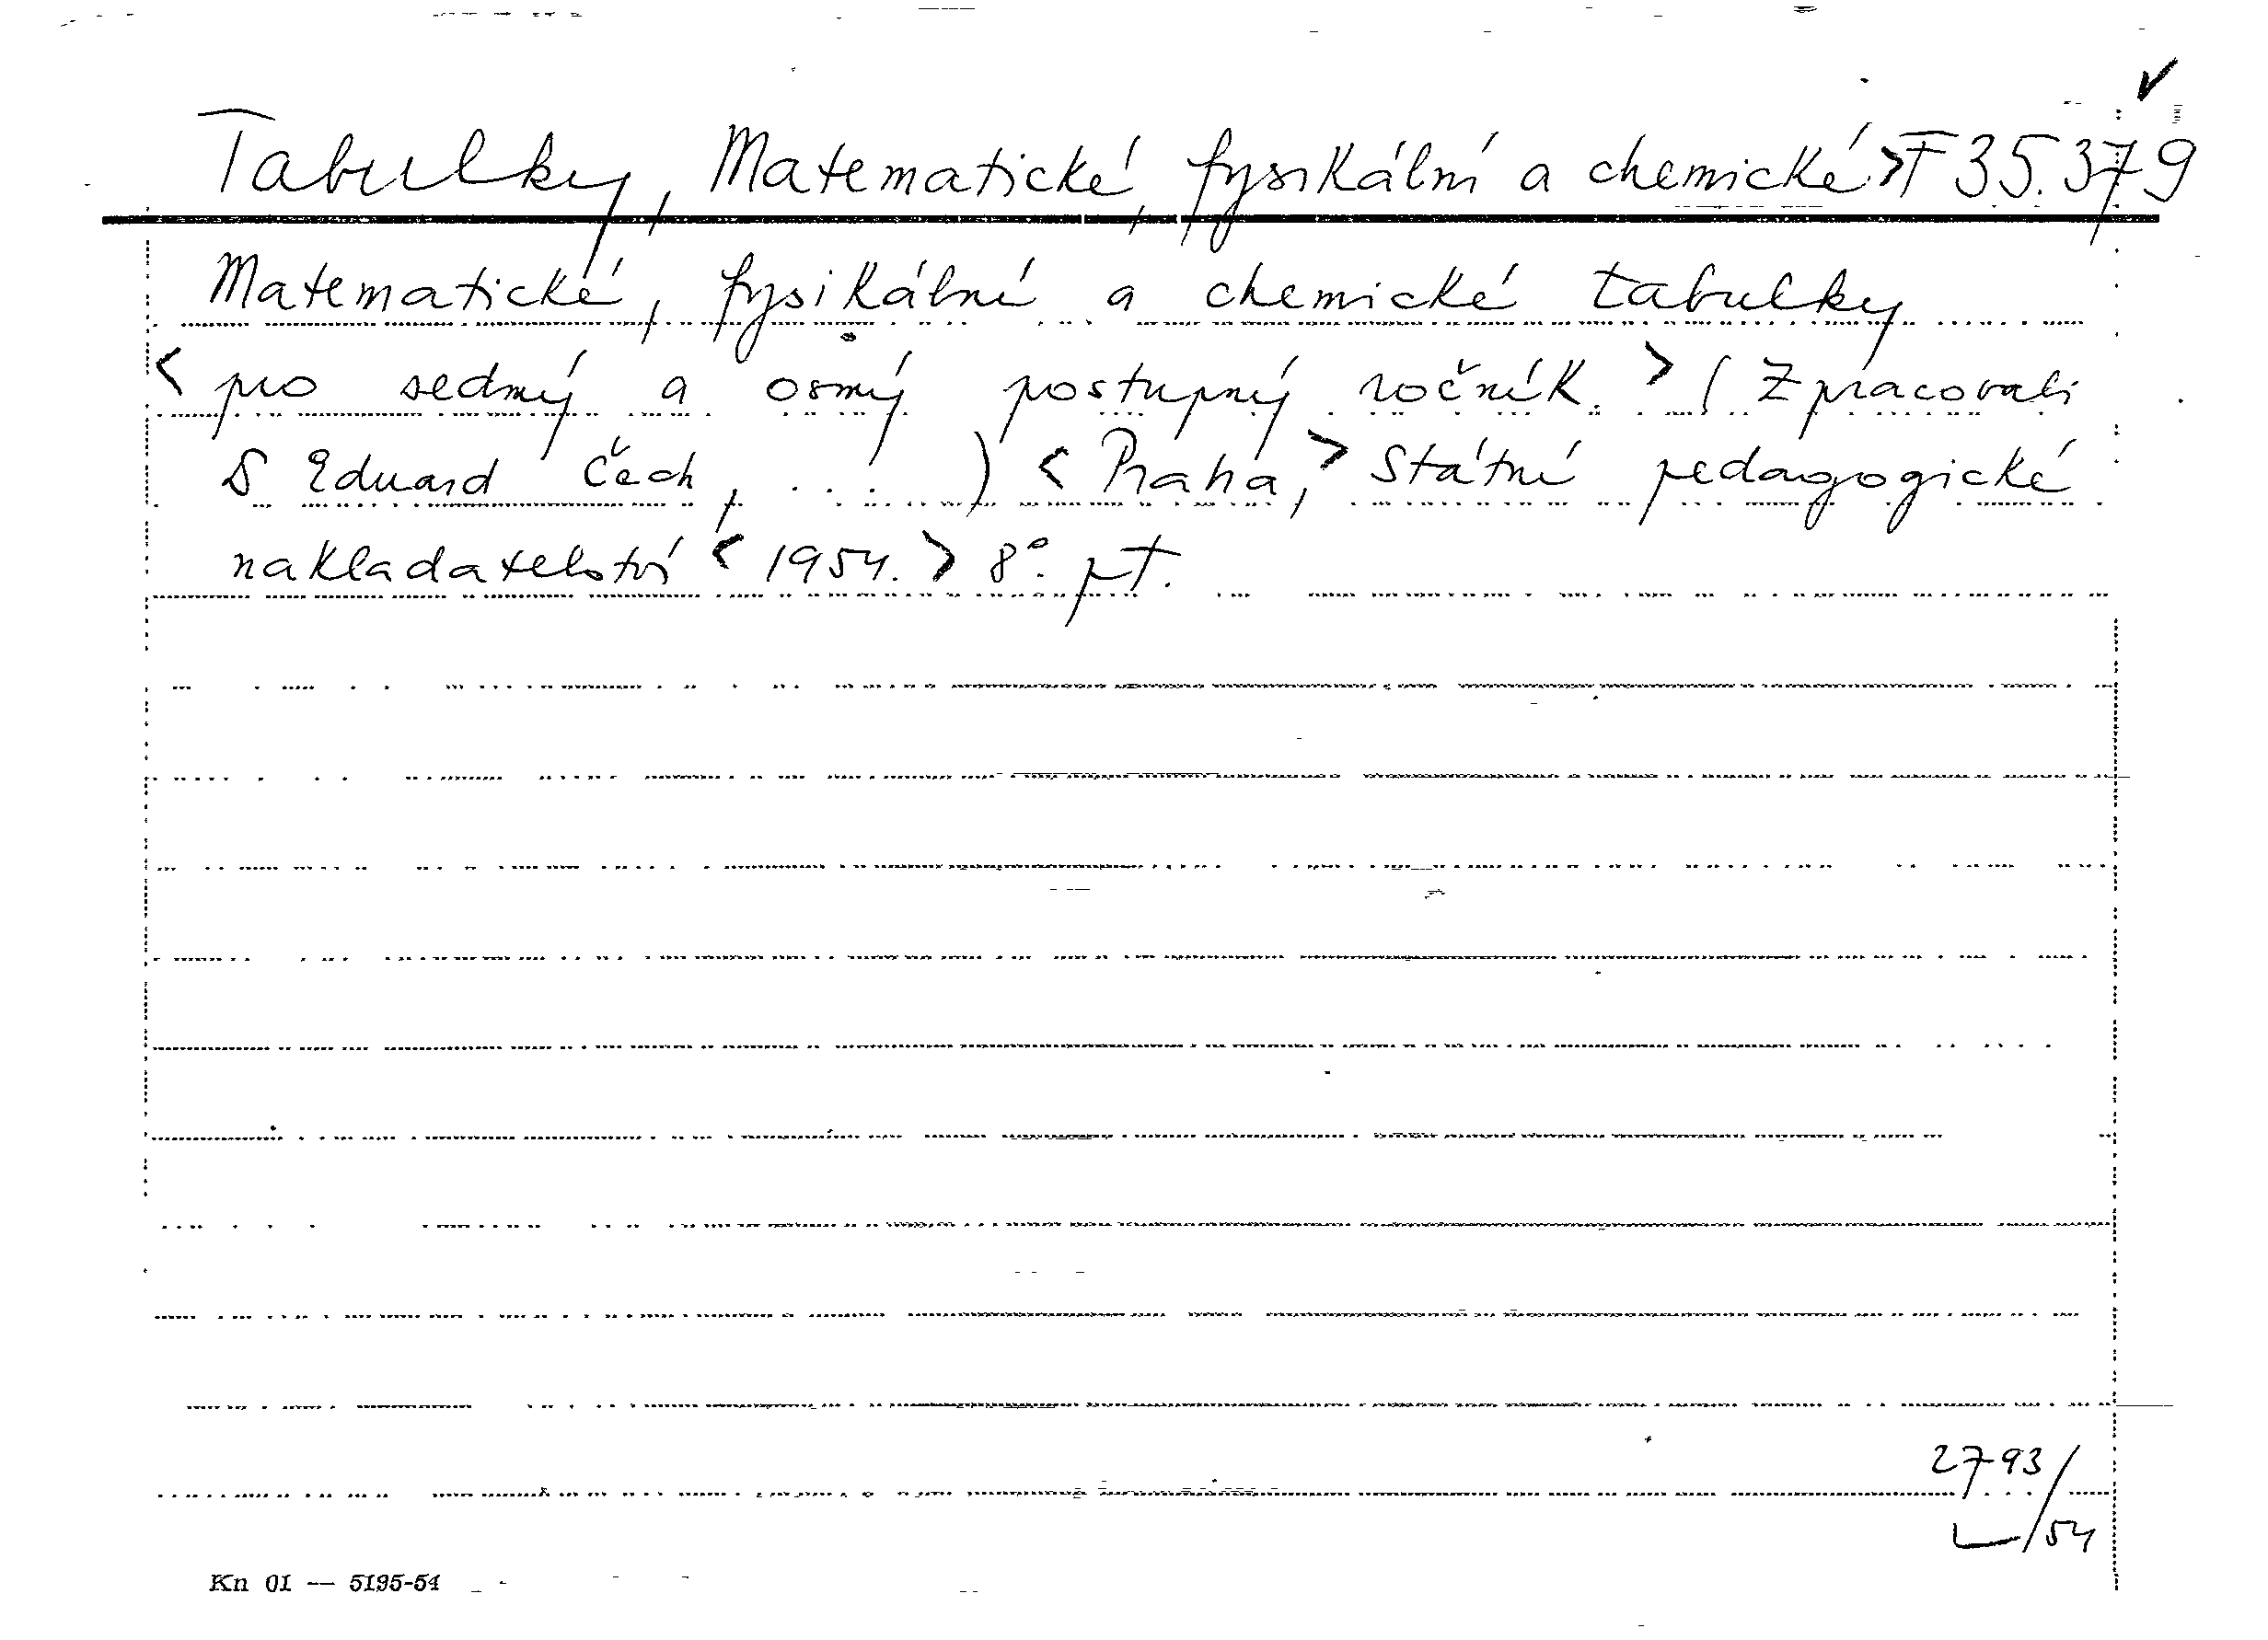 Tabulky, Matematické, fysikální a chemické > F 35.379
Matematické, fysikální a chemické tabulky
< pro sedmý a osmý postupný ročník. > ( Zpracovali
Eduard Čech, . . . ) < Praha, > Státní pedagogické
nakladatelství < 1954. > 8°. pt.
2793/
L/54
Kn 01 — 5195-54